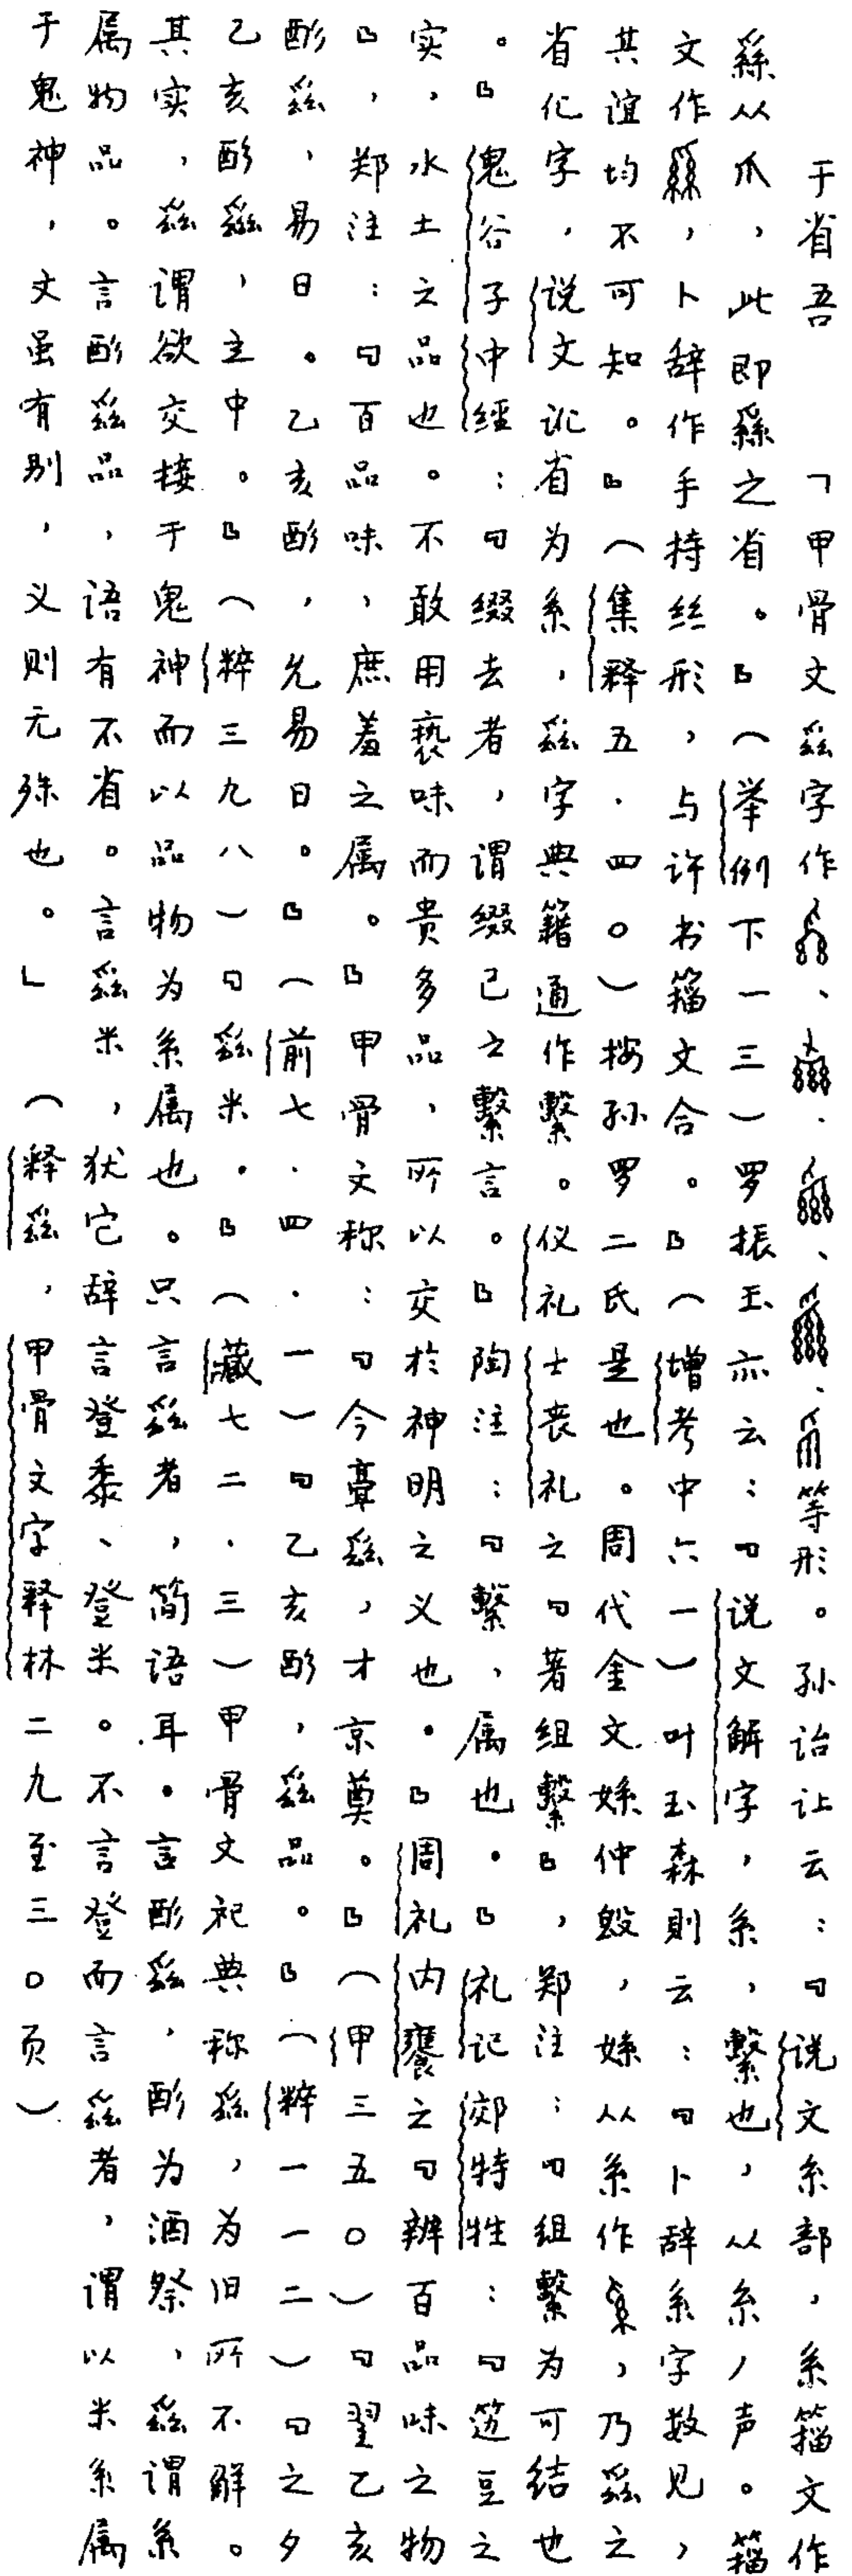 于省吾　「甲骨文𢇁字作、、、、等形。孙诒让云：『说文系部，系籀文作
𦃟从爪，此即𦃟之省。』（举例下一三）罗振玉亦云：『说文解字，系，繫也，从糸，丿声。籀
文作，卜辞作手持丝形，与许书籀文合。』（增考中六一）叶玉森则云：『卜辞系字数见，
其谊均不可知。』（集释五·四〇）按孙罗二氏是也。周代金文㜾仲毁，㜾从系作，乃𢇁之
省化字，说文讹省为系，𢇁字典籍通作繫。仪礼士丧礼之『著组繫』，郑注：『组繫为可结也
。』鬼谷子中经：『缀去者，谓缀己之繫言。』陶注：『繫，属也。』礼记郊特牲：『笾豆之
实，水土之品也。不敢用亵味而贵多品，所以交於神明之义也。』周礼内饔之『辨百品味之物
』，郑注：『百品味，庶羞之属。』甲骨文称：『今𢇁，才京奠。』（甲三五〇）『翌乙亥
酚𢇁，易日。乙亥酚，允易日。』（前七·四·一）『乙亥酚，𢇁品。』（粹一一二）『之夕
乙亥酚𢇁，主中。』（粹三九八）『𢇁米。』（藏七二·三）甲骨文祀典称𢇁，为旧所不解。
其实，𢇁谓欲交接于鬼神而以品物为系属也。只言𢇁者，简语耳。言酚𢇁，酚为酒祭，𢇁谓系
属物品。言酚𢇁品，语有不省。言𢇁米，犹它辞言登黍、登米。不言登而言𢇁者，谓以米系属
于鬼神，文虽有别，义则无殊也。」（释𢇁，甲骨文字释林二九至三〇页）